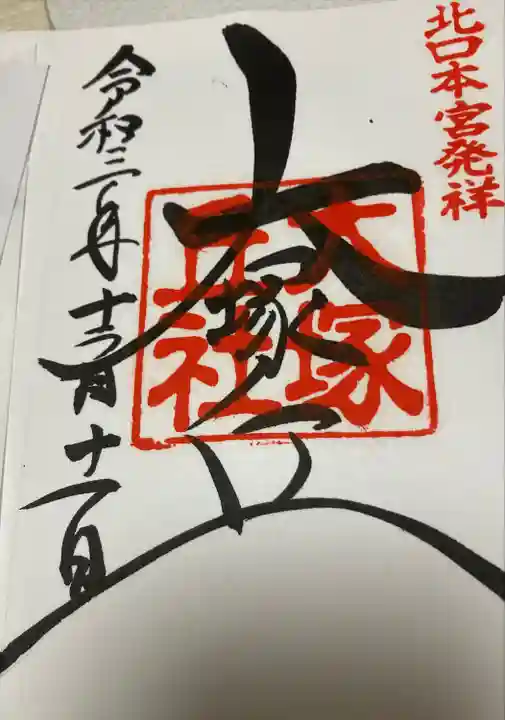 北口本宮発祥
大塚丘
大塚
丘社
令和三年十二月十一日